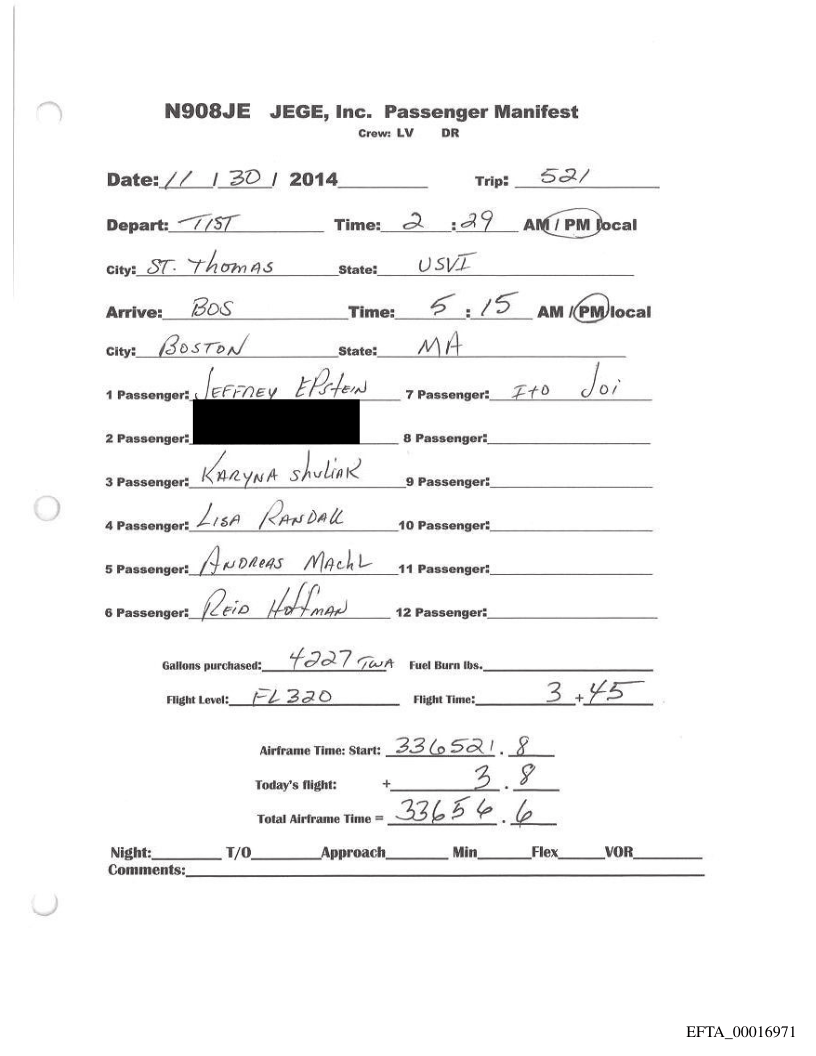 N908JE JEGE, Inc. Passenger Manifest
Crew: LV DR
Date: 11 / 30 / 2014 Trip: 521
Depart: TIST Time: 2 : 29 AM / PM local
City: ST. Thomas State: USVI
Arrive: BOS Time: 5 : 15 AM / PM local
City: BOSTON State: MA
1 Passenger: JEFFREY EPstEIN 7 Passenger: Ito Joi
2 Passenger: 8 Passenger:
3 Passenger: KARYNA shuliAK 9 Passenger:
4 Passenger: LISA RANDAll 10 Passenger:
5 Passenger: ANDREAS MAchL 11 Passenger:
6 Passenger: REID HoffMAN 12 Passenger:
Gallons purchased: 4227 TWA Fuel Burn lbs.
Flight Level: FL 320 Flight Time: 3 + 45
Airframe Time: Start: 336521 . 8
Today's flight: + 3 . 8
Total Airframe Time = . 6
Night: T/O Approach Min Flex VOR
Comments:
EFTA_00016971